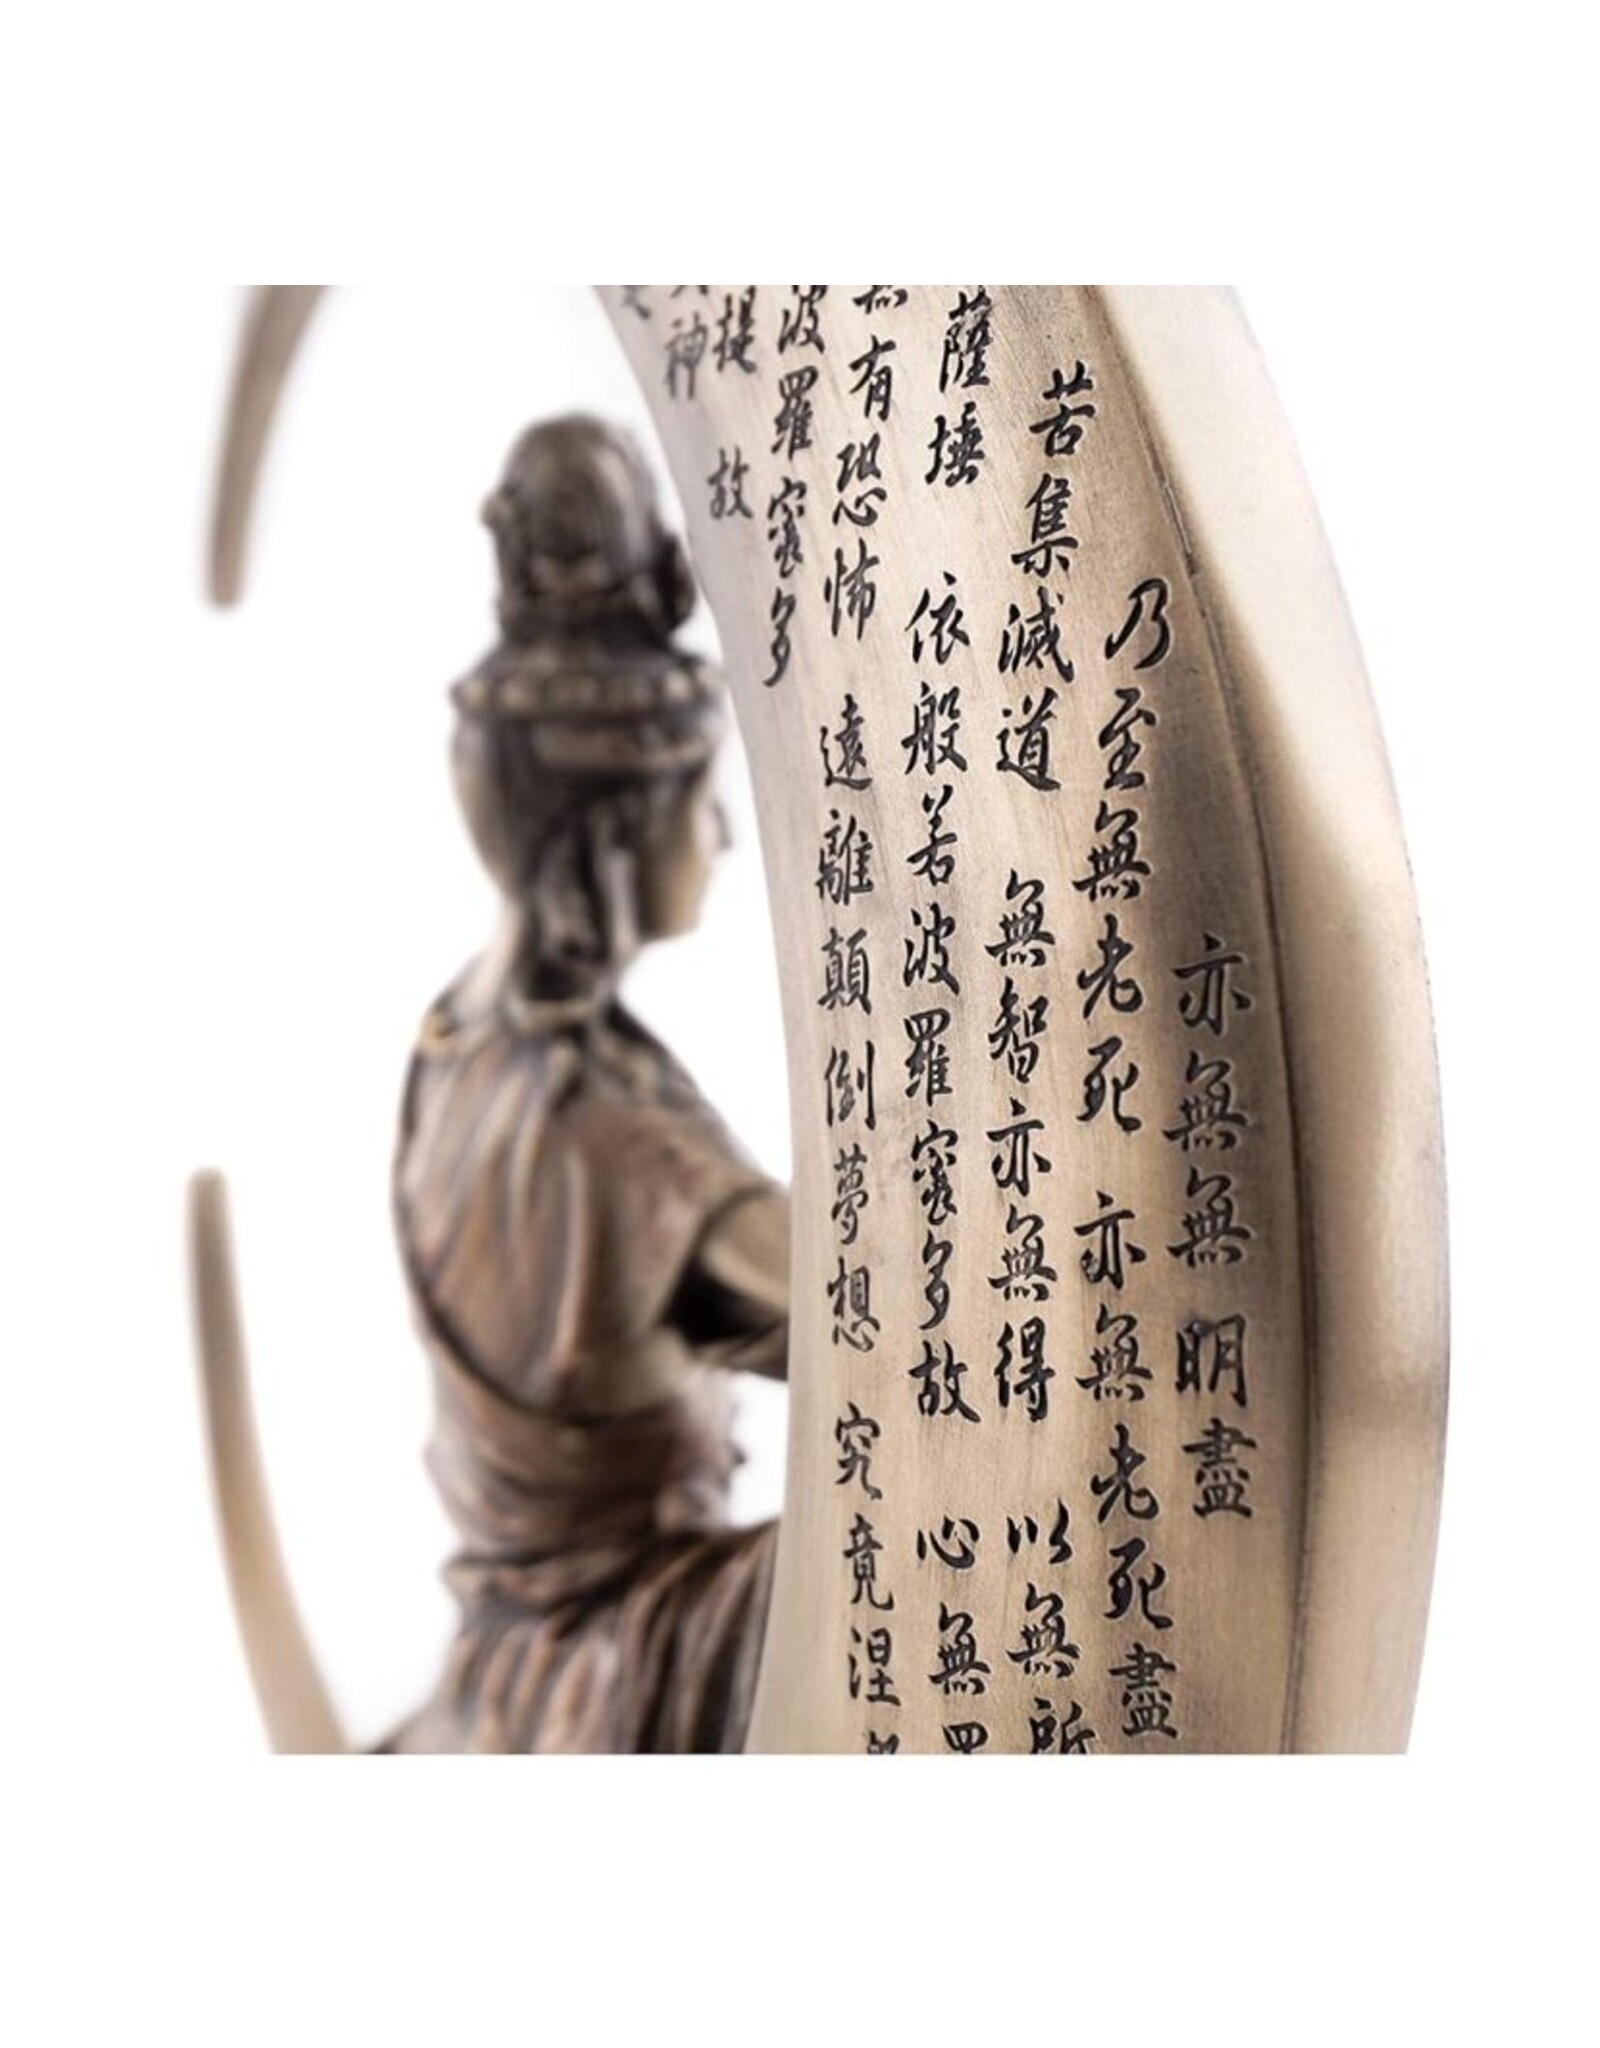 亦無無明盡
乃至無老死 亦無老死盡
苦集滅道 無智亦無得 以無所
薩埵 依般若波羅蜜多故 心無
無有恐怖 遠離顛倒夢想 究竟涅
波羅蜜多
提 故
神